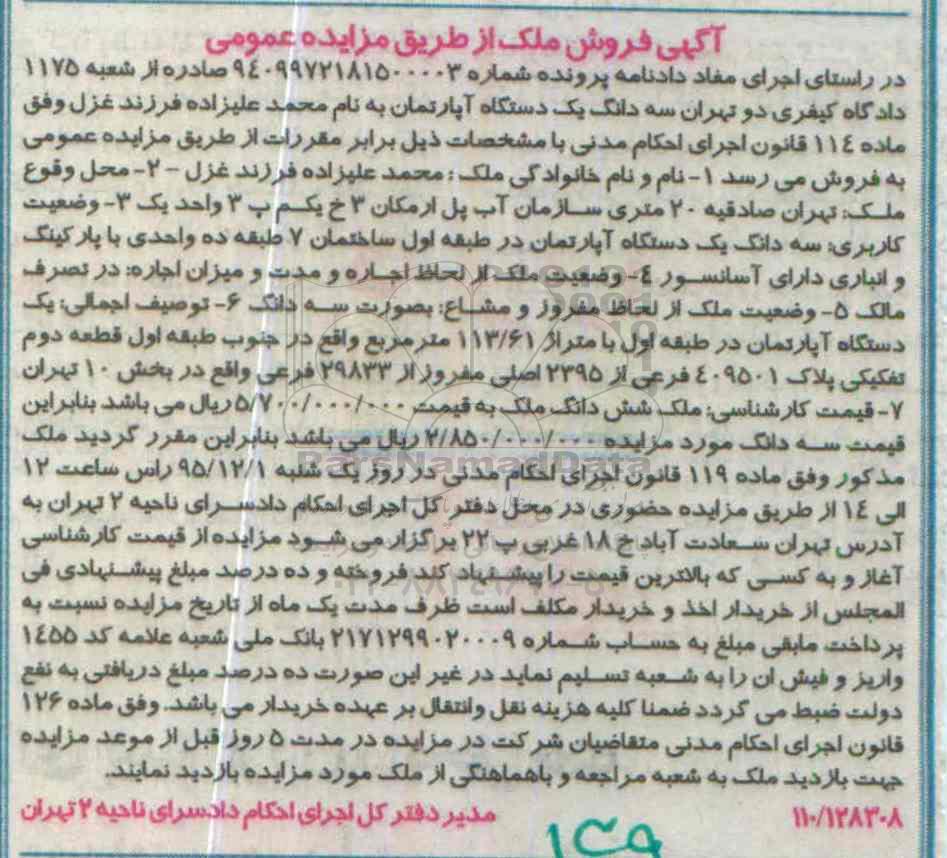 آگهی فروش ملک از طریق مزایده عمومی
در راستای اجرای مفاد دادنامه پرونده شماره ۹٤۰۹۹۷۲۱۸۱۵۰۰۰۰۳ صادره از شعبه ۱۱۷۵
دادگاه کیفری دو تهران سه دانگ یک دستگاه آپارتمان به نام محمد علیزاده فرزند غزل وفق
ماده ۱۱٤ قانون اجرای احکام مدنی با مشخصات ذیل برابر مقررات از طریق مزایده عمومی
به فروش می رسد ۱- نام و نام خانوادگی ملک : محمد علیزاده فرزند غزل – ۲- محل وقوع
ملک: تهران صادقیه ۲۰ متری سازمان آب پل ارمکان ۳ خ یکم پ ۳ واحد یک ۳- وضعیت
کاربری: سه دانگ یک دستگاه آپارتمان در طبقه اول ساختمان ۷ طبقه ده واحدی با پارکینگ
و انباری دارای آسانسور ٤- وضعیت ملک از لحاظ اجاره و مدت و میزان اجاره: در تصرف
مالک ۵- وضعیت ملک از لحاظ مفروز و مشاع: بصورت سه دانگ ۶- توصیف اجمالی: یک
دستگاه آپارتمان در طبقه اول با متراژ ۱۱۳/۶۱ مترمربع واقع در جنوب طبقه اول قطعه دوم
تفکیکی پلاک ٤۰۹۵۰۱ فرعی از ۲۳۹۵ اصلی مفروز از ۲۹۸۳۳ فرعی واقع در بخش ۱۰ تهران
۷- قیمت کارشناسی: ملک شش دانگ ملک به قیمت ۵/۷۰۰/۰۰۰/۰۰۰ ریال می باشد بنابراین
قیمت سه دانگ مورد مزایده ۲/۸۵۰/۰۰۰/۰۰۰ ریال می باشد بنابراین مقرر گردید ملک
مذکور وفق ماده ۱۱۹ قانون اجرای احکام مدنی در روز یک شنبه ۹۵/۱۲/۱ راس ساعت ۱۲
الی ۱٤ از طریق مزایده حضوری در محل دفتر کل اجرای احکام دادسرای ناحیه ۲ تهران به
آدرس تهران سعادت آباد خ ۱۸ غربی پ ۲۲ برگزار می شود مزایده از قیمت کارشناسی
آغاز و به کسی که بالاترین قیمت را پیشنهاد کند فروخته و ده درصد مبلغ پیشنهادی فی
المجلس از خریدار اخذ و خریدار مکلف است ظرف مدت یک ماه از تاریخ مزایده نسبت به
پرداخت مابقی مبلغ به حساب شماره ۲۱۷۱۲۹۹۰۲۰۰۰۹ بانک ملی شعبه علامه کد ۱٤۵۵
واریز و فیش ان را به شعبه تسلیم نماید در غیر این صورت ده درصد مبلغ دریافتی به نفع
دولت ضبط می گردد ضمنا کلیه هزینه نقل وانتقال بر عهده خریدار می باشد. وفق ماده ۱۲۶
قانون اجرای احکام مدنی متقاضیان شرکت در مزایده در مدت ۵ روز قبل از موعد مزایده
جهت بازدید ملک به شعبه مراجعه و باهماهنگی از ملک مورد مزایده بازدید نمایند.
۱۱۰/۱۲۸۳۰۸
مدیر دفتر کل اجرای احکام دادسرای ناحیه ۲ تهران
ParsNamadData